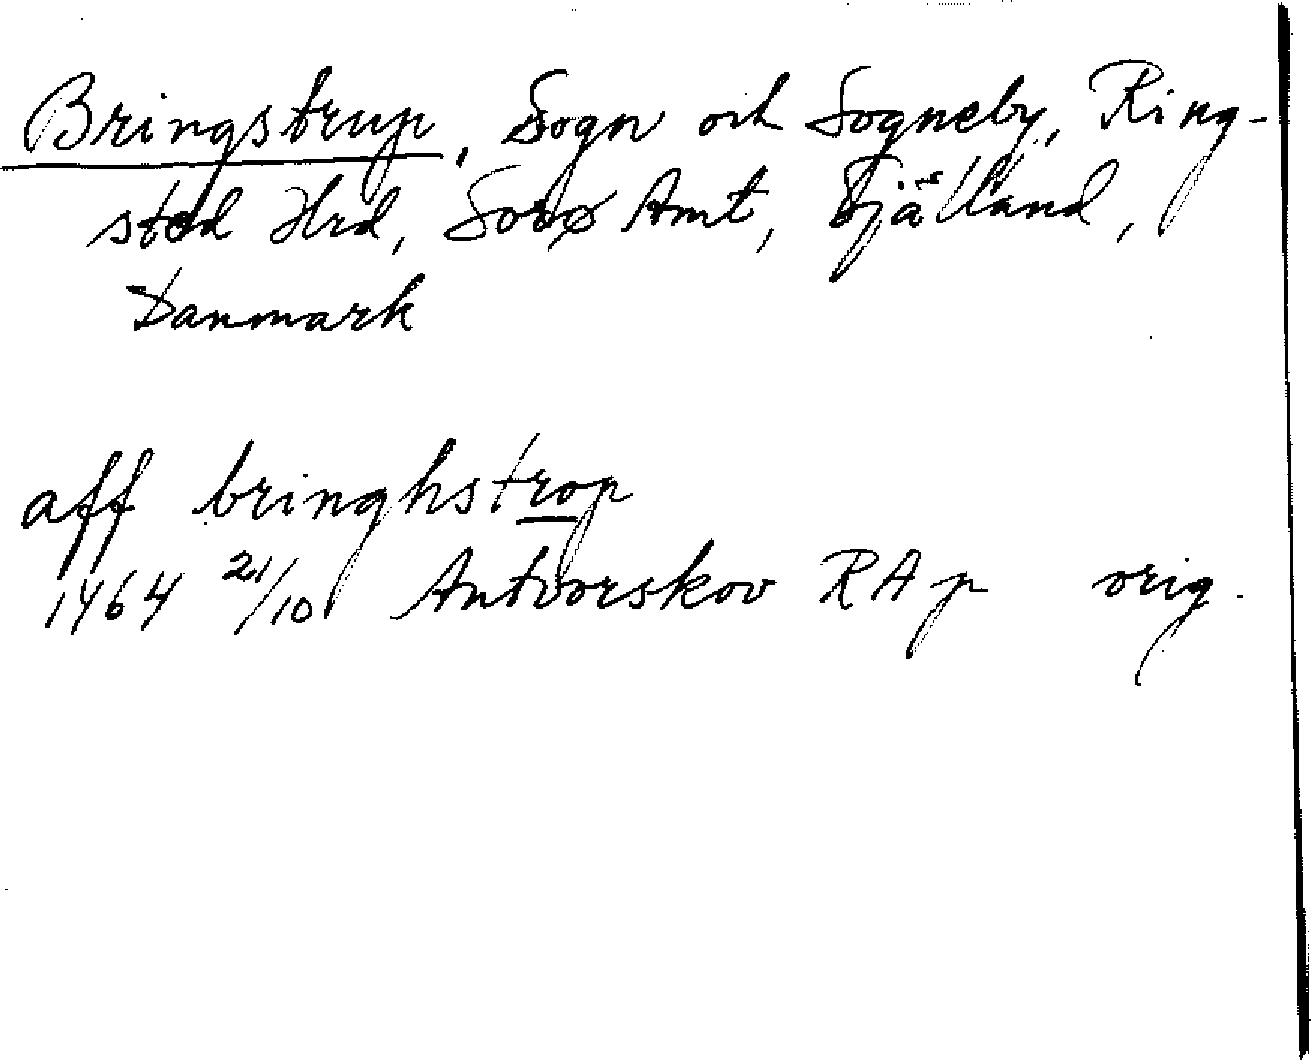 Bringstrup, Sogn och Sogneby, Ring-
sted Hrd, Sorø Amt, Själland,
Danmark
aff bringhstrop
1464 21/10 Antvorskov RAp orig.